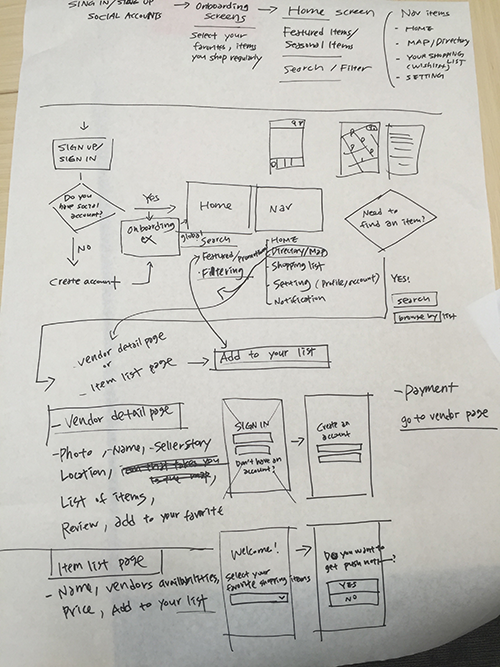 SING IN/SIGN UP
SOCIAL ACCOUNTS
Onboarding
SCREENS
Select your
favorites, items
you shop regularly
Home screen
Featured Items/
Seasonal Items
Search / Filter
Nav items
- HOME
- MAP/Directory
- YOUR SHOPPING
(wishlist) LIST
- SETTING
SIGN UP/
SIGN IN
Do you
have social
account?
YES
NO
Create account
Onboarding
ex
Home
Nav
global
Search
Featured/promotion
Filtering
HOME
Directory/Map
Shopping list
Setting (profile/account)
Notification
Need to
find an item?
YES!
search
browse by list
vendor detail page
or
Item list page
Add to your list
- Vendor detail page
- Photo, - Name, - Seller story
Location,
List of items,
Review, add to your favorite
SIGN IN
Don't have an
account?
Create an
account
- Payment
go to vendor page
Item list page
- Name, vendors availabilities,
Price, Add to your list
Welcome!
Select your
favorite shopping items
Do you want to
get push noti ?
YES
NO